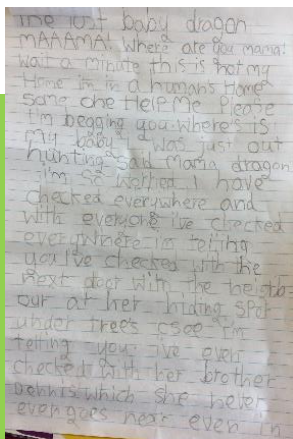 The lost baby dragon
MAAAMA! Where are you mama!
wait a minute this is not my
Home im in a humans Home
Some one HeLp Me Please
I'm begging you. where's is
my baby I was just out
hunting said mama dragon
I'm so worried I have
checked everywhere and
with everyone i've checked
everywhere i'm telling
you I've checked with the
next door with the neighb-
our at her hiding spot
under trees I'm
telling you i've even
checked with her brother
Dennis which she never
even goes near even in